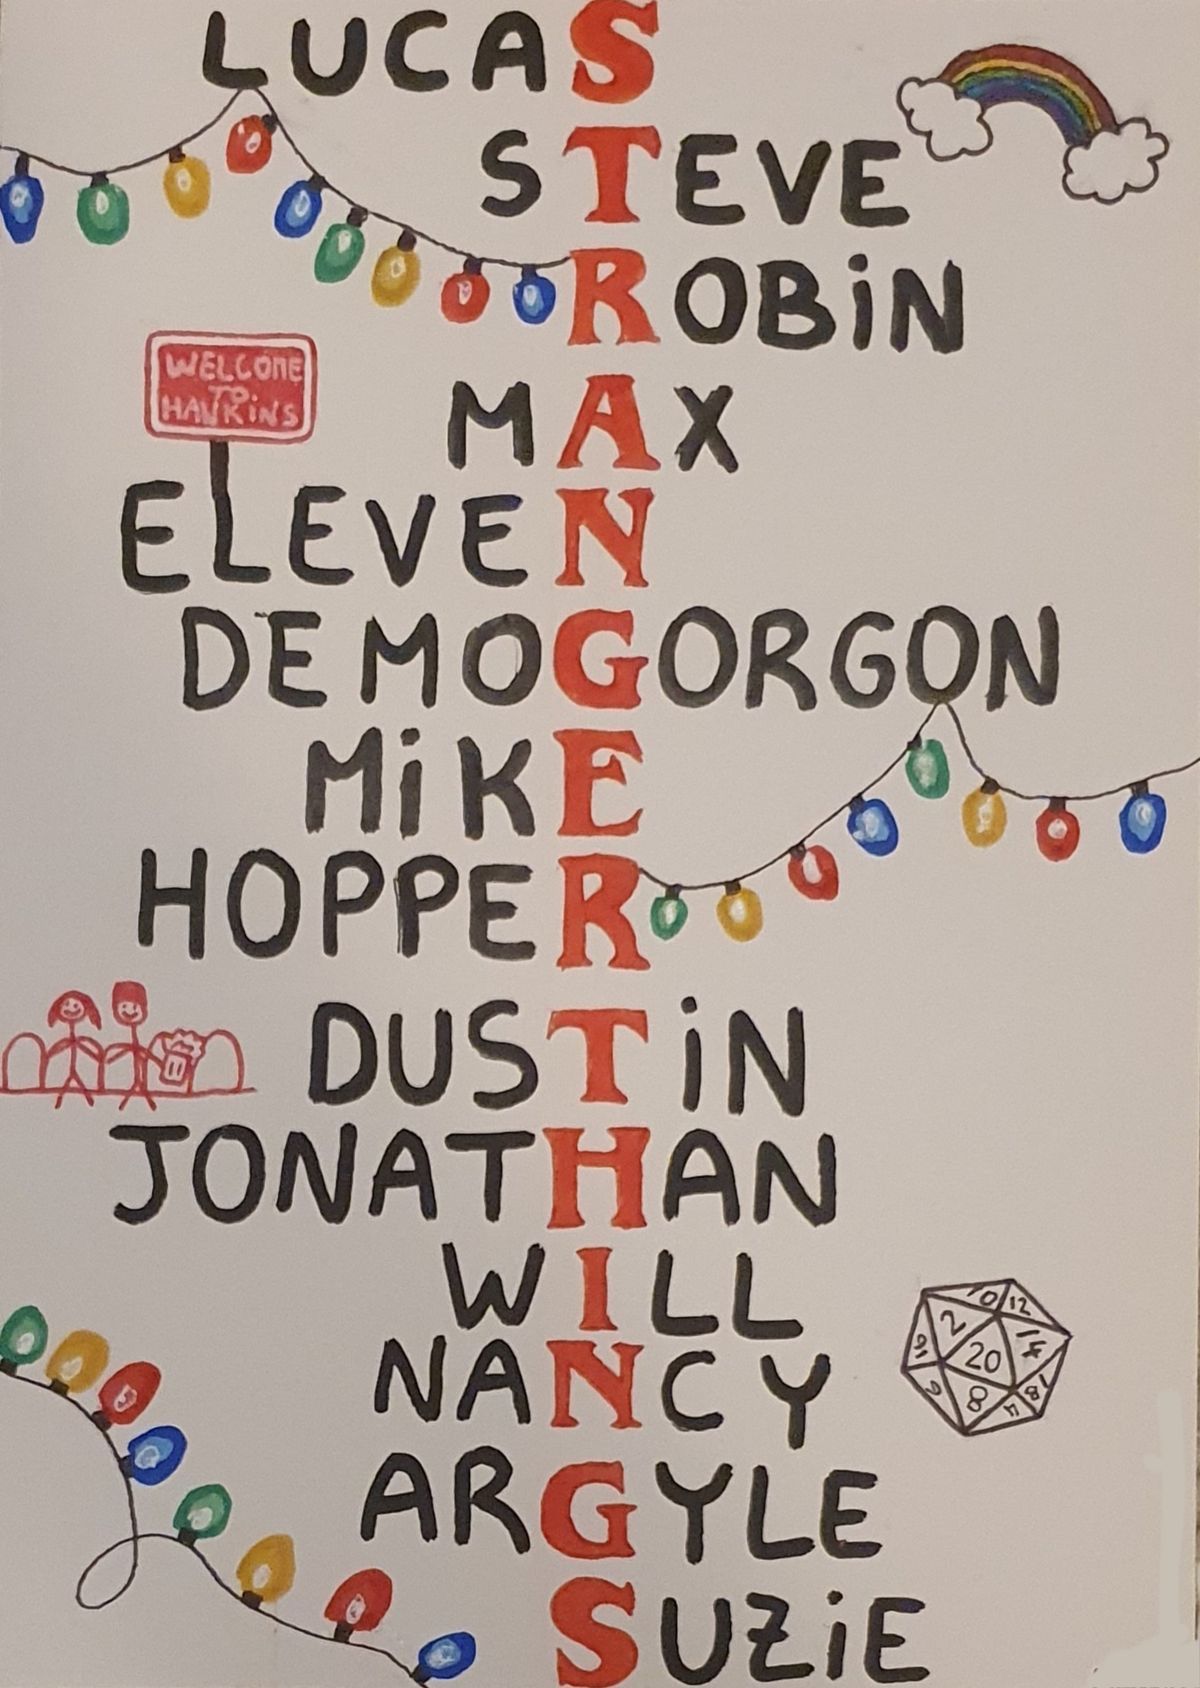 LUCAS
STEVE
ROBiN
WELCOME
TO
HAWKiNS
MAX
ELEVEN
DEMOGORGON
MiKE
HOPPER
DUSTiN
JONATHAN
WILL
NANCY
ARGYLE
SUZiE
20
2
8
12